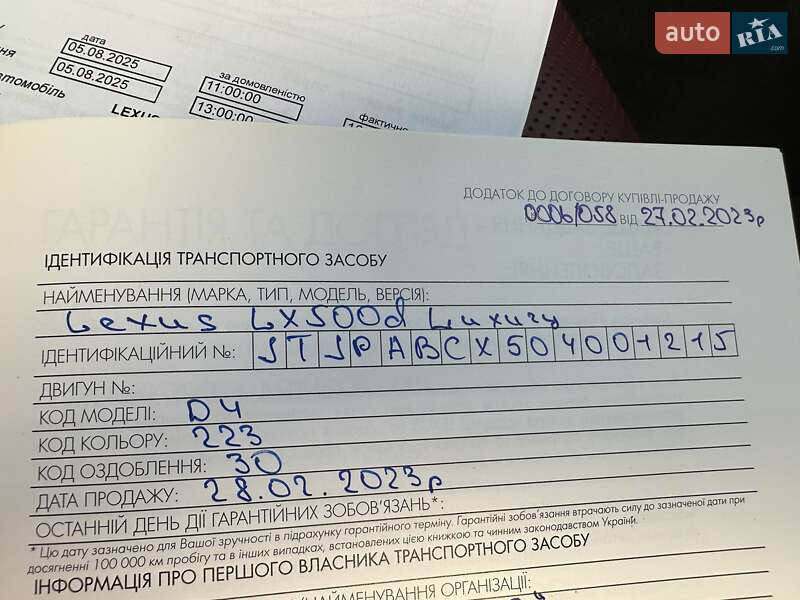 auto RIA.com
дата
05.08.2025
05.08.2025
за домовленістю
11:00:00
13:00:00
фактично
втомобіль
LEXUS
ДОДАТОК ДО ДОГОВОРУ КУПІВЛІ-ПРОДАЖУ
0006/058 ВІД 27.02.2023р
ІДЕНТИФІКАЦІЯ ТРАНСПОРТНОГО ЗАСОБУ
НАЙМЕНУВАННЯ (МАРКА, ТИП, МОДЕЛЬ, ВЕРСІЯ):
Lexus LX500d Luxury
ІДЕНТИФІКАЦІЙНИЙ №: JTJPABCX504001215
ДВИГУН №:
КОД МОДЕЛІ: D4
КОД КОЛЬОРУ: 223
КОД ОЗДОБЛЕННЯ: 30
ДАТА ПРОДАЖУ: 28.02.2023р
ОСТАННІЙ ДЕНЬ ДІЇ ГАРАНТІЙНИХ ЗОБОВ'ЯЗАНЬ*:
* Цю дату зазначено для Вашої зручності в підрахунку гарантійного терміну. Гарантійні зобов'язання втрачають силу до зазначеної дати при
досягненні 100 000 км пробігу та в інших випадках, встановлених цією книжкою та чинним законодавством України.
ІНФОРМАЦІЯ ПРО ПЕРШОГО ВЛАСНИКА ТРАНСПОРТНОГО ЗАСОБУ
/НАЙМЕНУВАННЯ ОРГАНІЗАЦІЇ: